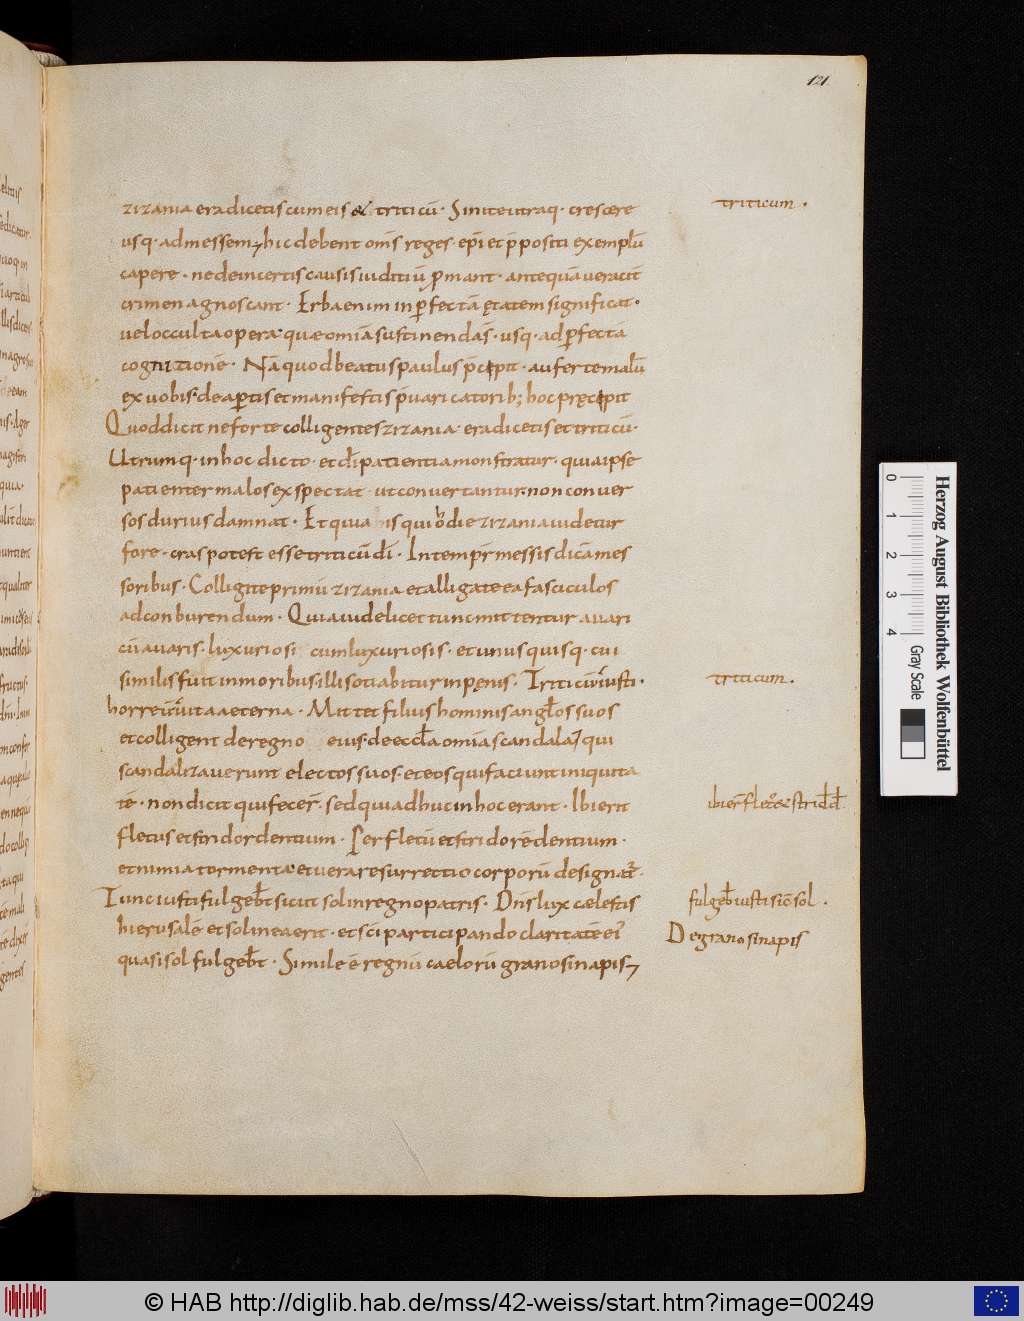 121.
zizania eradicetis cum eis & triticū· Sinite utraq· crescere
triticum.
usq· ad messem⁊ hic debent om̄s reges· ep̄i et p̄positi exemplū
capere· ne de incertis causis iuditiū ꝓmant· antequā veracit̄
crimen agnoscant· Erba enim inꝑfectā ętatem significat·
vel occulta opera· quae omīa sustinenda s̄· usq· ad ꝑfectā
cognitionē· Nā quod beatus paulus p̄cępit· auferte malū
ex vobis· de aꝑtis et manifestis p̄varicatorib; hoc pręcępit
Quod dicit ne forte colligentes zizania· eradicetis et triticū·
Utrumq· in hoc dicto· et dī patientia monstratur· quia ipse
patienter malos expectat· ut convertantur· non conver
sos durius damnat· Et quia is qui hodie zizania videtur
fore· cras potest esse triticū dī· In tempr̄ messis dicā mes
soribus· Colligite primū zizania et alligate ea fasciculos
ad conburendum· Quia videlicet tunc mittentur avari
cū avaris· luxuriosi cum luxuriosis· et unusquisq· cui
similis fuit in moribus illi sotiabitur in pęnis· Triticū iusti·
triticum.
horreū vita aeterna· Mittet filius hominis angl̄os suos
et colligent de regno eius· de eccl̄a omīa scandala⁊ qui
scandalizaverunt electos suos· et eos qui faciunt iniquita
tē· non dicit qui fecer̄· sed qui adhuc in hoc erant· Ibi erit
ibi er̄ flet; & strid d̄
fletus et stridor dentium· Per fletū et stridorē dentium·
et nimia tormenta· et vera resurrectio corporū designat̄·
Tunc iusti fulgeb̄t sicut sol in regno patris· Dn̄s lux caelestis
fulgeb̄ iusti sic̄ sol.
hierusalē et sol in ea erit· et sc̄i participando claritatē ei'
De grano sinapis
quasi sol fulgeb̄t· Simile ē regnū caelorū grano sinapis⁊
Herzog August Bibliothek Wolfenbüttel
0 1 2 3 4
Gray Scale
© HAB http://diglib.hab.de/mss/42-weiss/start.htm?image=00249